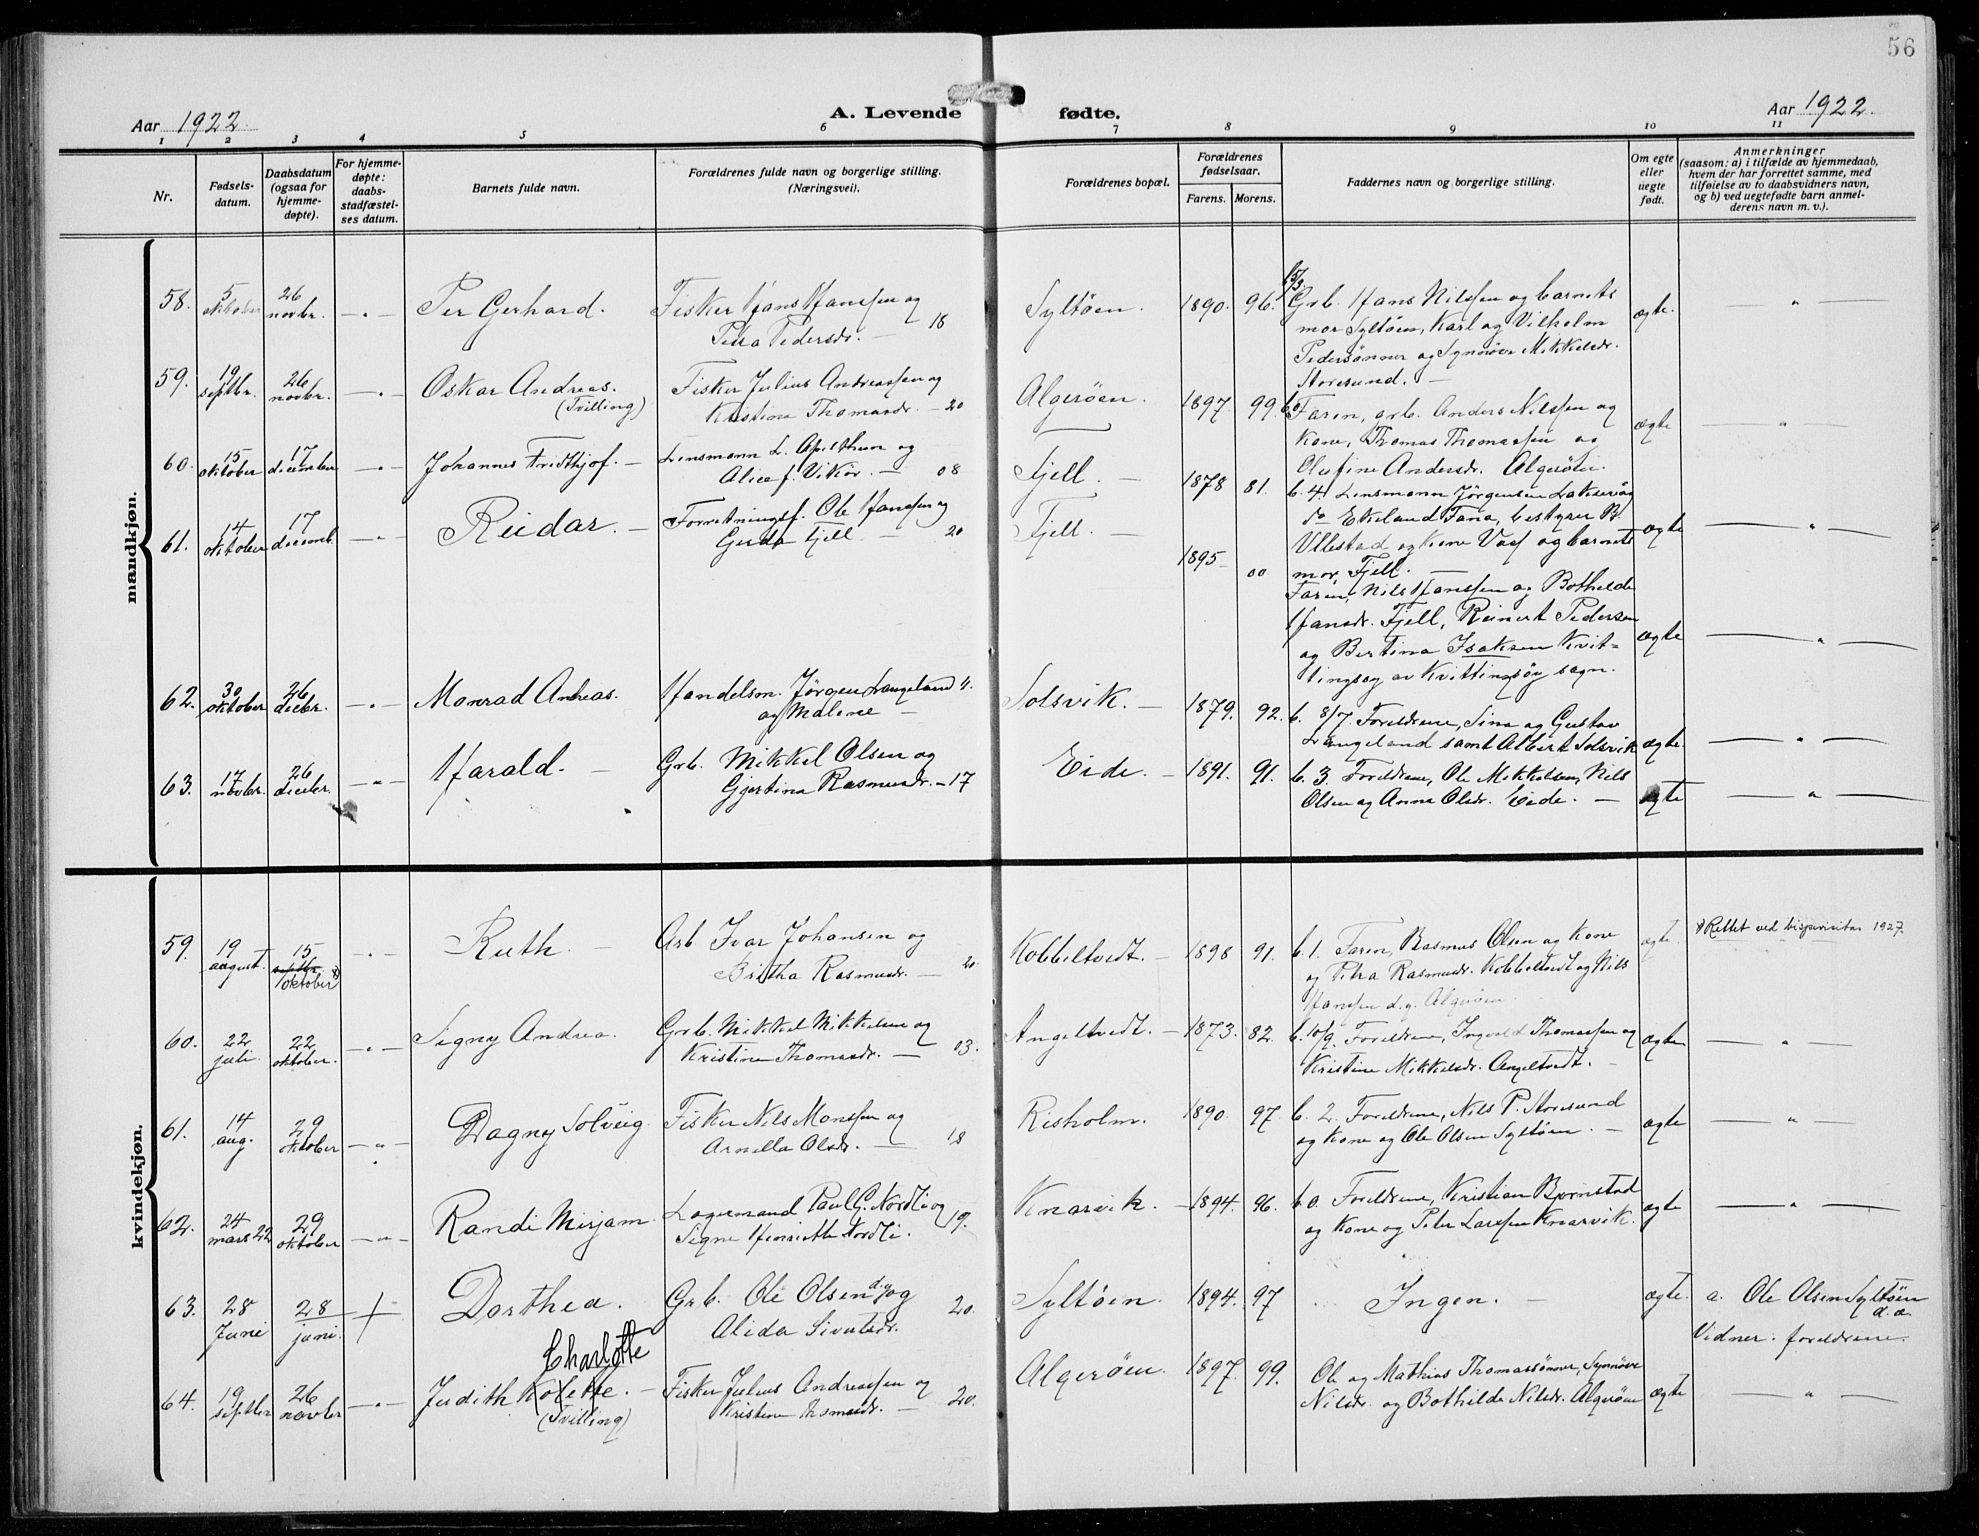 56
Aar 1922. A. Levende fødte. Aar 1922.
1 2 3 4 5 6 7 8 9 10 11
Nr.
Fødsels-
datum.
Daabsdatum
(ogsaa for
hjemme-
døpte).
For hjemme-
døpte:
daabs-
stadfæstel-
ses datum.
Barnets fulde navn.
Forældrenes fulde navn og borgerlige stilling.
(Næringsvei).
Forældrenes bopæl.
Forældrenes
fødselsaar.
Farens. Morens.
Faddernes navn og borgerlige stilling.
Om egte
eller
uegte
født.
Anmerkninger
(saasom: a) i tilfælde av hjemmedaab,
hvem der har forrettet samme, med
tilføielse av to daabsvidners navn,
og b) ved uegtefødte barn anmel-
derens navn m. v.).
mandkjøn.
58. 5 oktober 26 novbr. — " — Per Gerhard.
Fisker Hans Hanssen og
Petra Pedersdr. — 18
Syltöen. 1890. 96.
Grb. Hans Nilssen og barnets
mor Syltöen, Karl og Vilhelm
Pedersønner og Synnöve Mikkelsdr.
Storesund. —
ægte. "—
59. 19 septbr. 26 novbr. — " — Oskar Andreas.
(Tvilling)
Fisker Julius Andreassen og
Kristina Thomasdr. — 20
Algeröen. 1897. 99.
Faren, arb. Anders Nilssen og
Kone, Thomas Thomassen og
Olufine Andersdr. Algeröen.
ægte "—
60. 15 oktober 17 december — " — Johannes Fridthjof. —
Lensmann L. Apelthun og
Alice f. Vikör. — 08
Fjell. — 1878 81.
b. 4. Lensmann Jörgensen Laksevåg
do Ekeland Fana, bestyrer B.
Ullestad og Kone Voss og barnets
mor, Fjell. —
ægte — " —
61. 14 oktober 17 decemb. — " — Reidar. —
Forretningsf. Ole Hanssen og
Gerda Fjell. — 20
Fjell. — 1895 00
Faren, Nils Hanssen og Bothilde
Hansdr. Fjell, Reinert Pedersen
og Bertina Isaksen Kvit-
tingsøy av Kvittingsøy sogn.
ægte — " —
62. 30 oktober 26 decbr. — " — Monrad Andreas.
Handelsm. Jörgen Langeland 11.
og Malene —
Solsvik. — 1879. 92.
b. 8/7. Foreldrene, Sina og Gustav
Langeland samt Albert Solsvik
ægte. — " —
63. 17 novbr. 26 decbr. — " — Harald. —
Grb. Mikkel Olsen og
Gjertina Rasmusdr. — 17
Eide. — 1891. 91.
b. 3. Foreldrene, Ole Mikkelsen, Nils
Olsen og Anna Olsdr. Eide. —
ægte — " —
kvindekjøn.
59. 19 august. 15 oktober x) — " — Ruth. —
Arb. Ivar Johansen og
Britha Rasmusdr. — 20
Kobbeltvedt. — 1898 91.
b. 1. Faren, Rasmus Olsen og Kone
og Petra Rasmusdr. Kobbeltvedt og Nils
Hanssen d.y. Algeröen.
ægte. x) Rettet ved bispevisitas 1927.
60. 22 juli. 22 oktober. — " — Signy Andrea.
Grb. Mikkel Mikkelsen og
Kristine Thomasdr. — 03.
Angeltvedt. — 1873. 82.
b. 10/9. Foreldrene, Ingvald Thomassen og
Kristine Mikkelsdr. Angeltvedt. —
ægte — " —
61. 14 aug. 29 oktober — " — Dagny Solveig.
Fisker Nils Monssen og
Arnilla Olsdr. — 18
Risholm. 1890. 97.
b. 2. Foreldrene, Nils P. Storesund
og Kone og Ole Olsen Syltöen. —
ægte — " —
62. 24 mars 22 29 oktober — " — Randi Mirjam.
Lagermand Paul G. Nordli og
Signe Henriette Nordli. 19.
Knarvik. — 1894. 96.
b. 0. Foreldrene, Kristian Bjørnstad
og Kone og Peter Larssen Knarvik.
ægte — " —
63. 28 Juni 28 juni. Dorthea.
Grb. Ole Olsen d.y. og
Alida Sivertsdr. 20.
Syltöen. 1894. 97
Ingen. —
ægte. a. Ole Olsen Syltöen
d.æ.
Vidner: foreldrene.
64. 19 septbr 26 novbr — " — Judith Kolette. — Charlotte
(Tvilling)
Fisker Julius Andreassen og
Kristine Thomasdr. — 20.
Algeröen. 1897. 99.
Ole og Mathias Thomassønner, Synnöve
Nilsdr. og Bothilde Nilsdr. Algeröen
ægte — " —